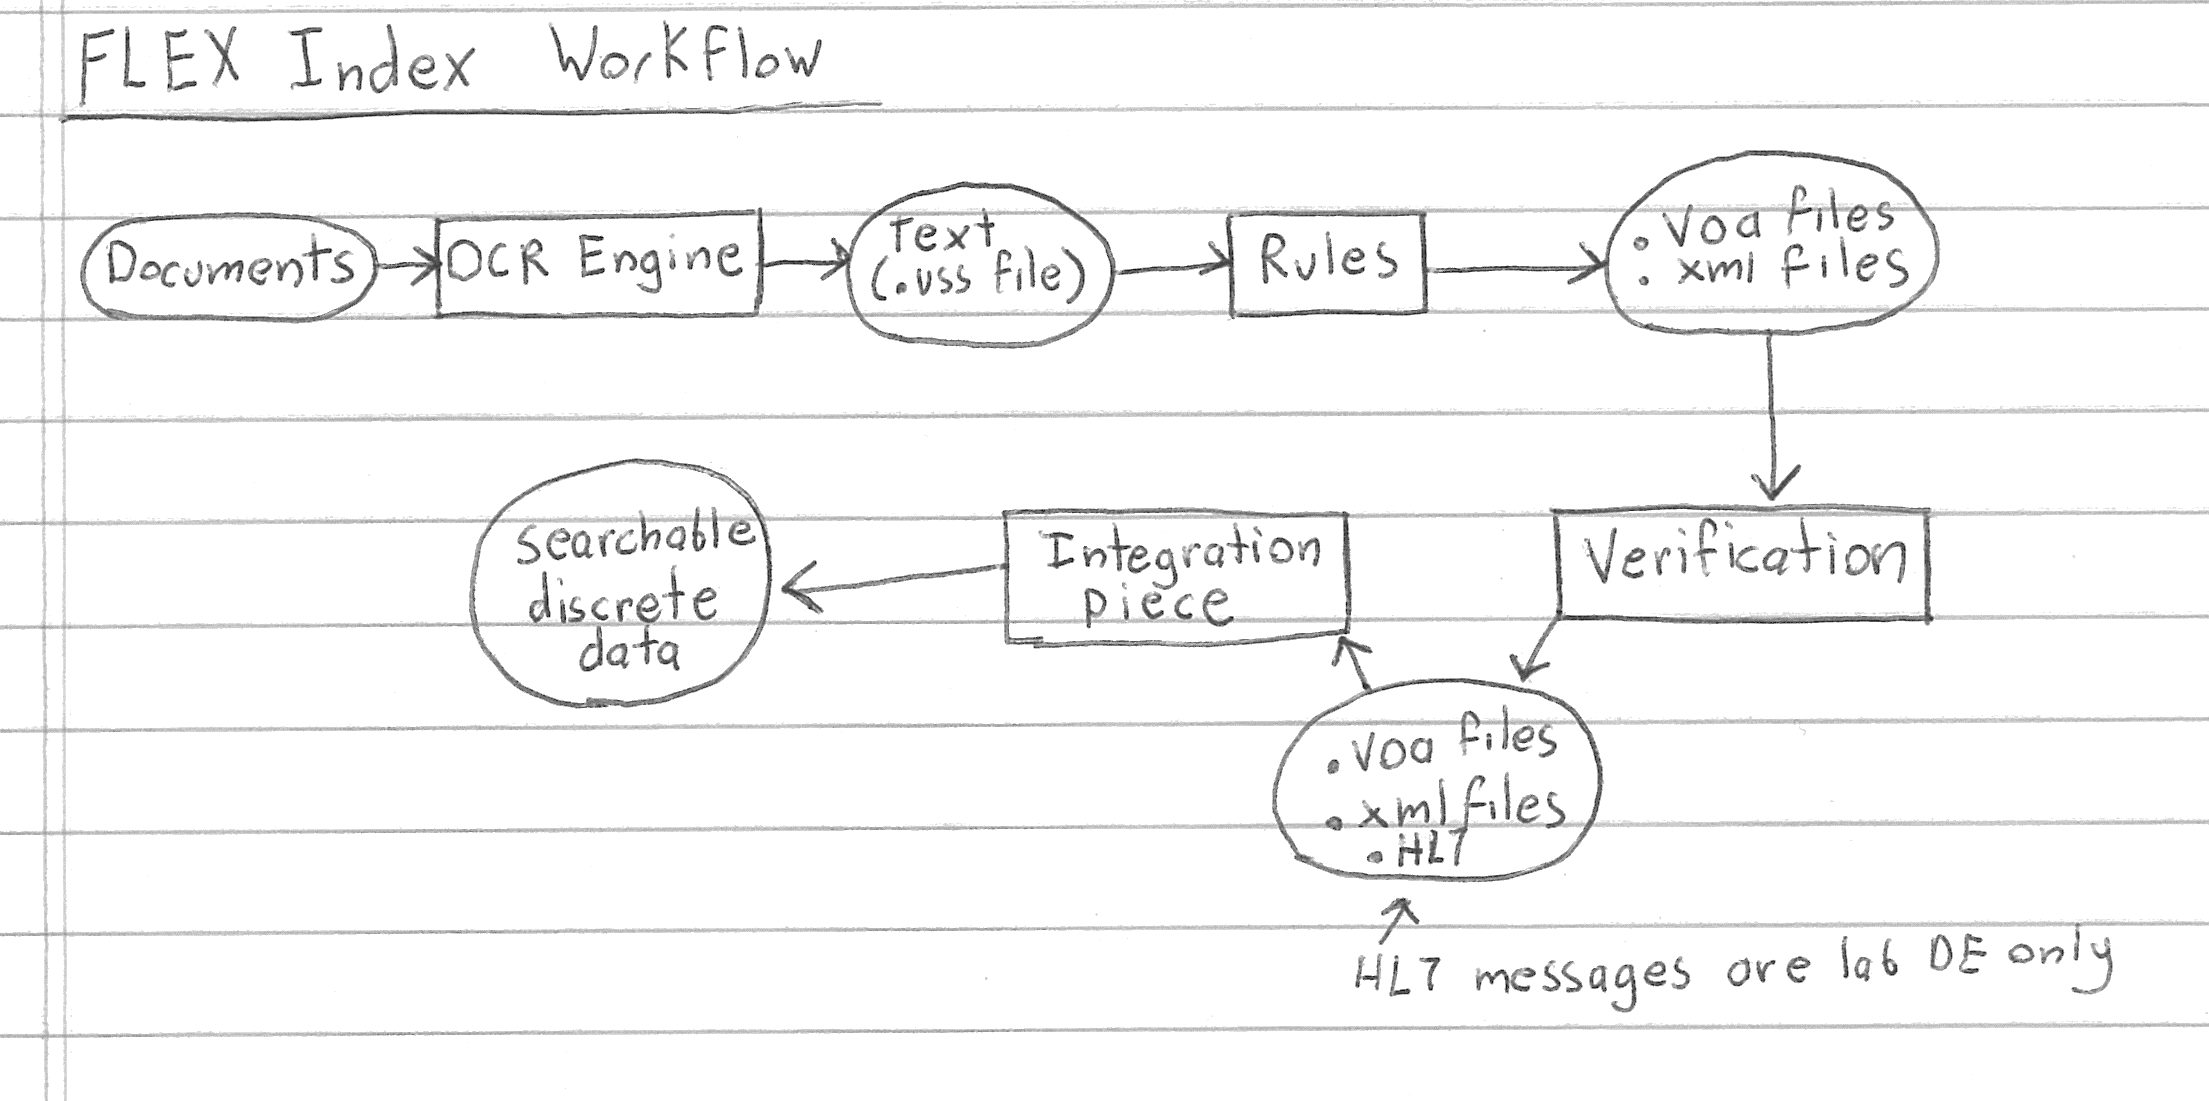 FLEX Index Workflow
Documents
OCR Engine
Text
(.uss file)
Rules
. voa files
. xml files
Verification
. voa files
. xml files
. HL7
HL7 messages are lab DE only
Integration
piece
searchable
discrete
data